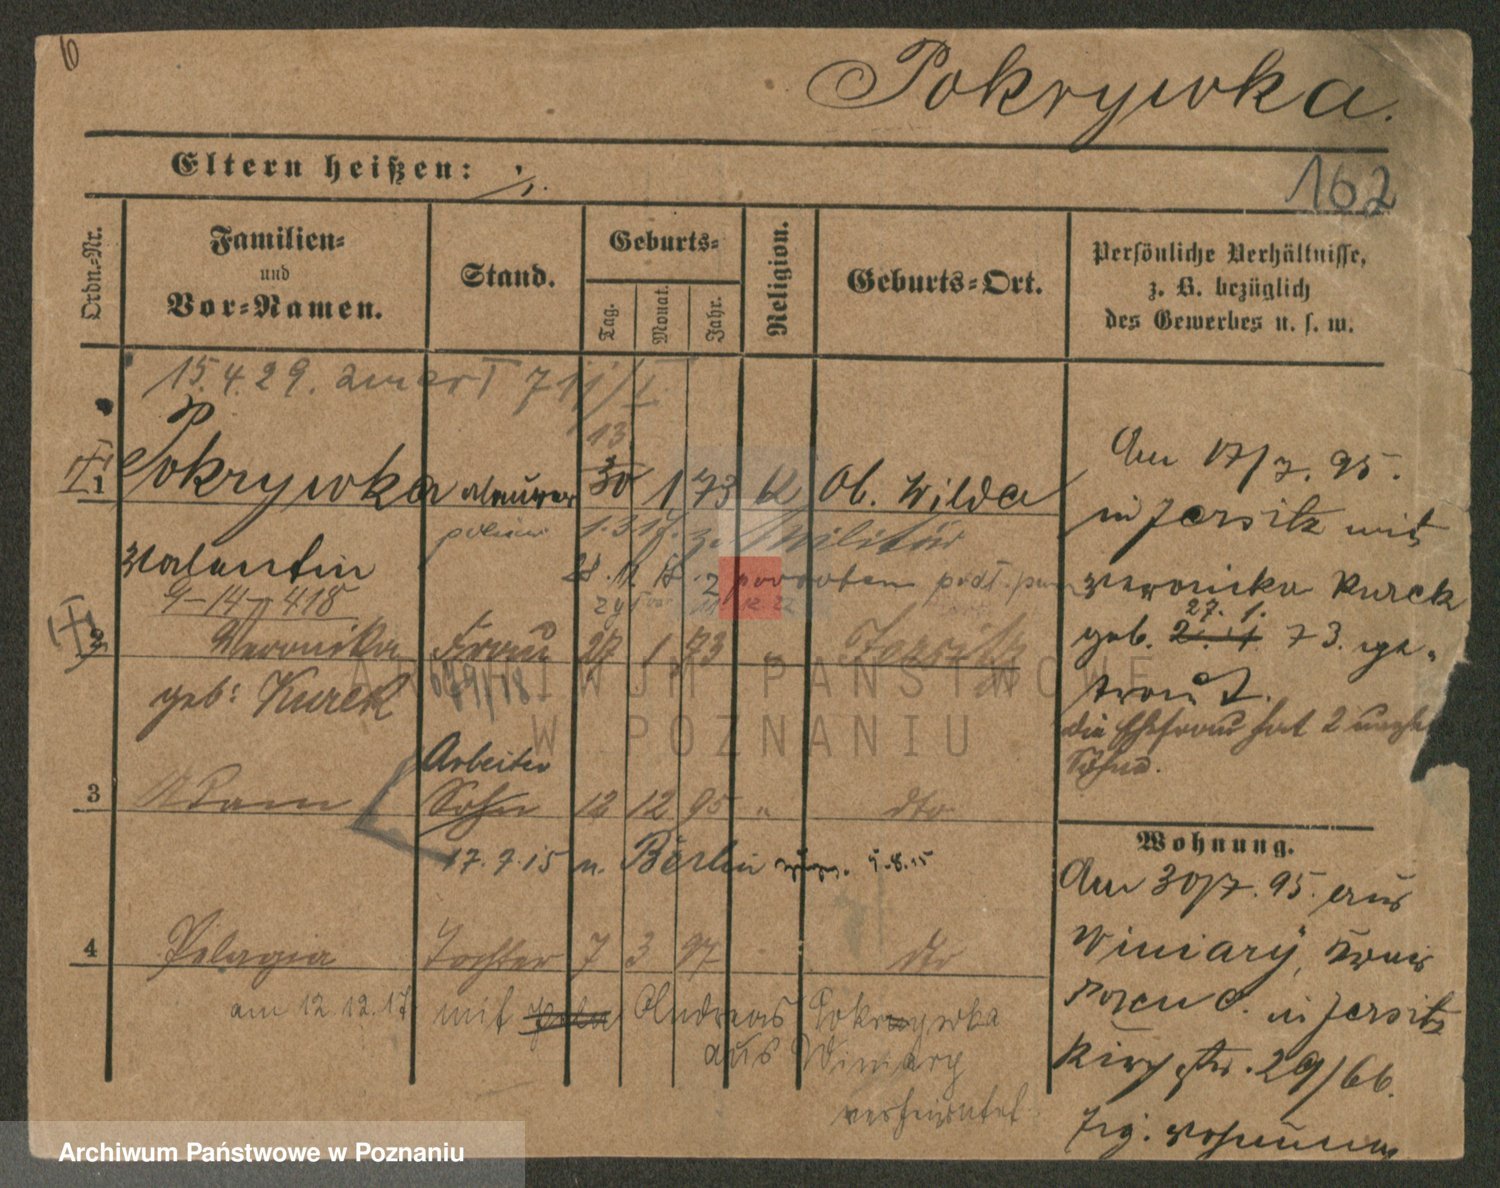 Pokrywka.
162
Eltern heißen: ./.
Ordn.-Nr.
Familien-
und
Vor-Namen.
Stand.
Geburts-
Tag.
Monat.
Jahr.
Religion.
Geburts-Ort.
Persönliche Verhältnisse,
z. B. bezüglich
des Gewerbes u. s. w.
15.4.29. zmarł
13
1 Pokrywka Maurer 30 1 73 K Ob. Wilda
1.3.17. z. Militär
Valentin
powrotem
9-14-418
2 Veronika Frau 27 1 73 " Jersitz
geb: Kurek
Arbeiter
3 Adam Sohn 12 12 95 " dto
17.7.15 n. Berlin zugz. 5.8.15
4 Pelagia Tochter 7 3 97 dto
am 12.12.17 mit Andreas Pokrywka
aus Winiary
verheiratet
Am 17/7. 95.
in Jersitz mit
Veronika Kurek
27. 1.
geb. 2. 1. 73. ge-
traut.
die Ehefrau hat 2 unehe
Söhne.
Wohnung.
Am 30/7. 95. aus
Winiary, Kreis
Posen O. in Jersitz
Kirchstr. 29/66.
ARCHIWUM PAŃSTWOWE
W POZNANIU
Archiwum Państwowe w Poznaniu